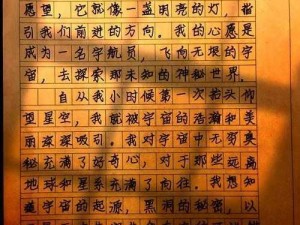 愿望，它就像一盏明亮的灯，指
引我们前进的方向。我的心愿是
成为一名宇航员，飞向无垠的宇
宙，去探索那未知的神秘世界。
自从我小时候第一次抬头仰
望星空，我就被宇宙的浩瀚和美
丽深深吸引。我对宇宙中无穷奥
秘充满了好奇心，对于那些远离
地球和星系充满了向往。我想知
道宇宙的起源，黑洞的秘密，以